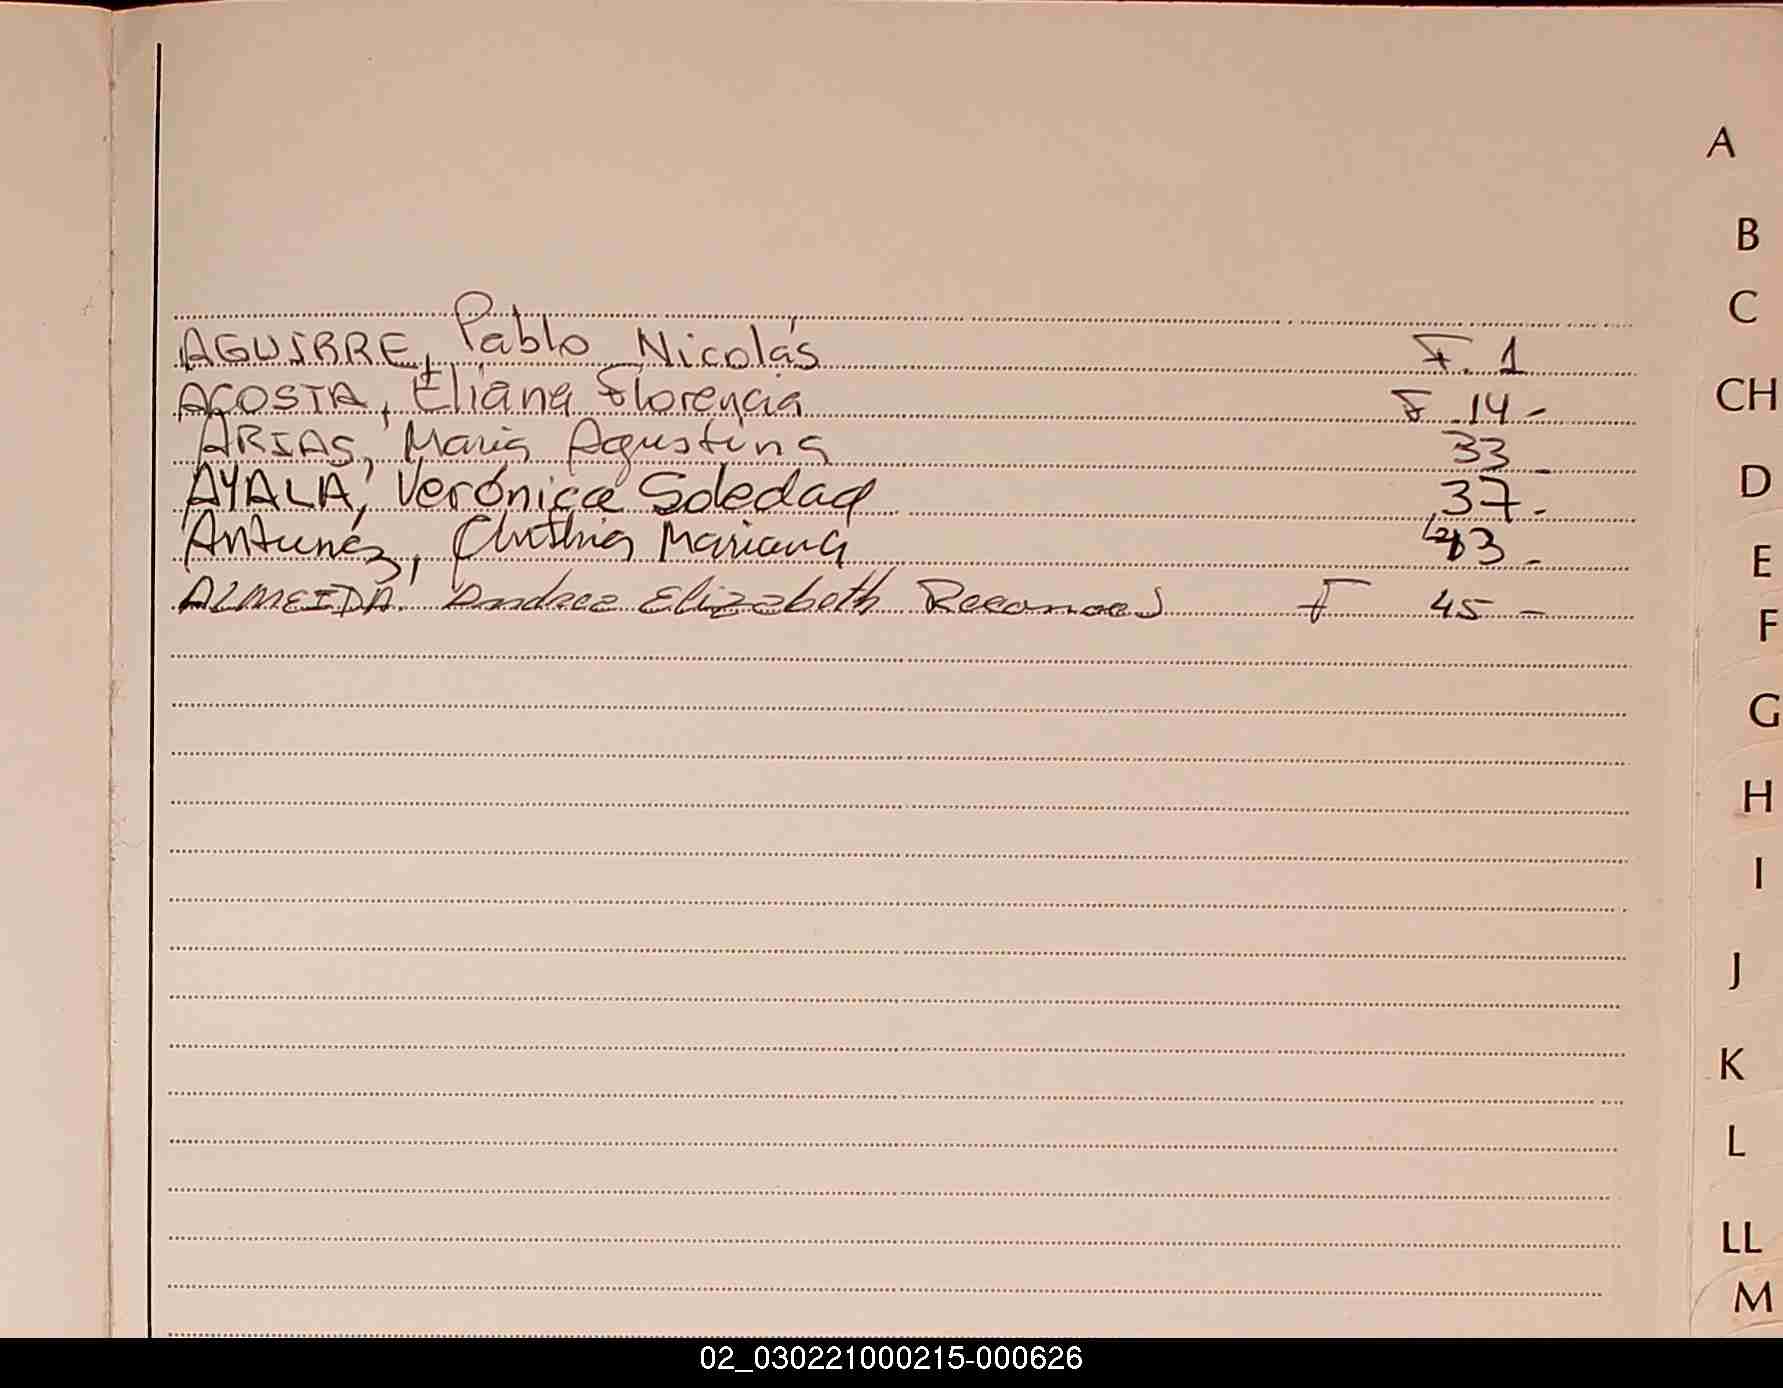 A
B
C
AGUIRRE, Pablo Nicolás F. 1
ACOSTA, Eliana Florencia F 14-
CH
ARIAS, Maria Agustina 33-
AYALA, Verónica Soledad 37.-
D
Antunez, Cinthia Mariana 43-
E
ALMEIDA Andrea Elizabeth F 45-
F
G
H
I
J
K
L
LL
M
02_030221000215-000626